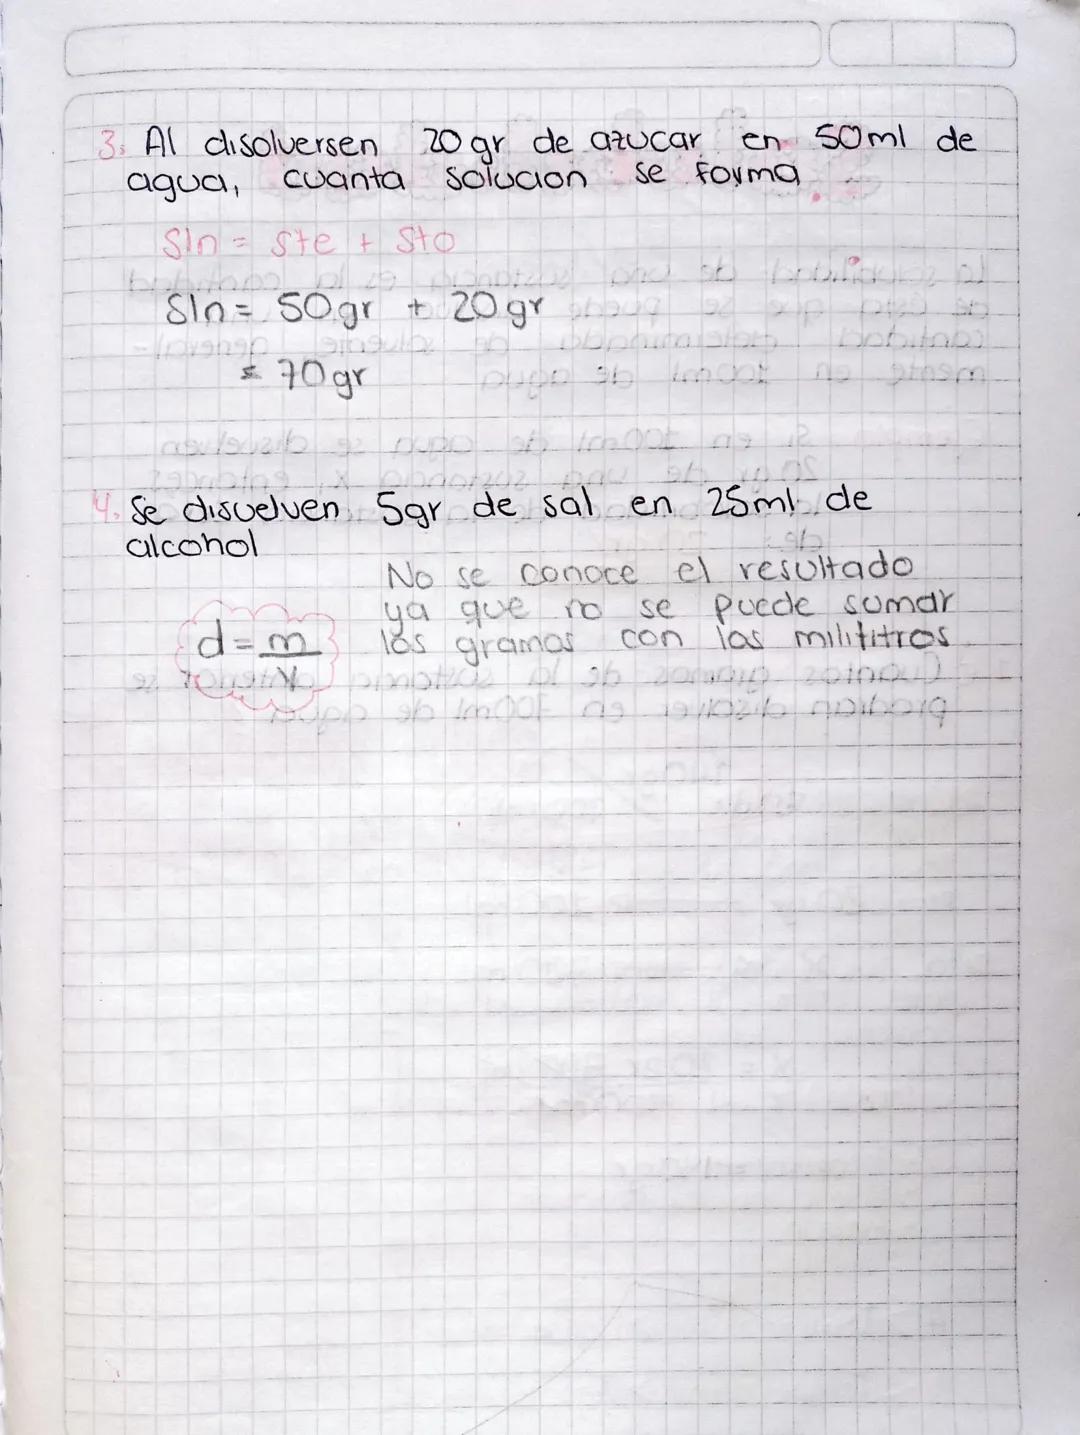 3. Al disolversen 20gr de azucar en 50ml de
agua, cuanta solucion se forma
Sln = Ste + Sto
Sln = 50gr + 20gr
= 70gr
4. Se disuelven 5gr de sal en 25ml de
alcohol
No se conoce el resultado
ya que no se puede sumar
d = m los gramos con los milititros
V